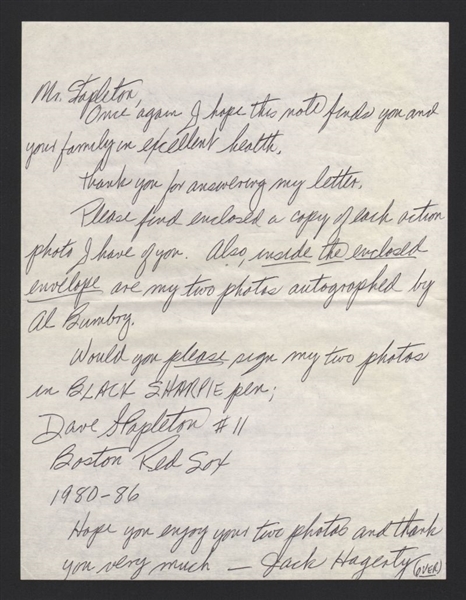 Mr. Stapleton,
Once again I hope this note finds you and
your family in excellent health.
Thank you for answering my letter.
Please find enclosed a copy of each action
photo I have of you. Also, inside the enclosed
envelope are my two photos autographed by
Al Bumbry.
Would you please sign my two photos
in BLACK SHARPIE pen;
Dave Stapleton #11
Boston Red Sox
1980-86
Hope you enjoy your two photos and thank
you very much — Jack Hagerty (OVER)